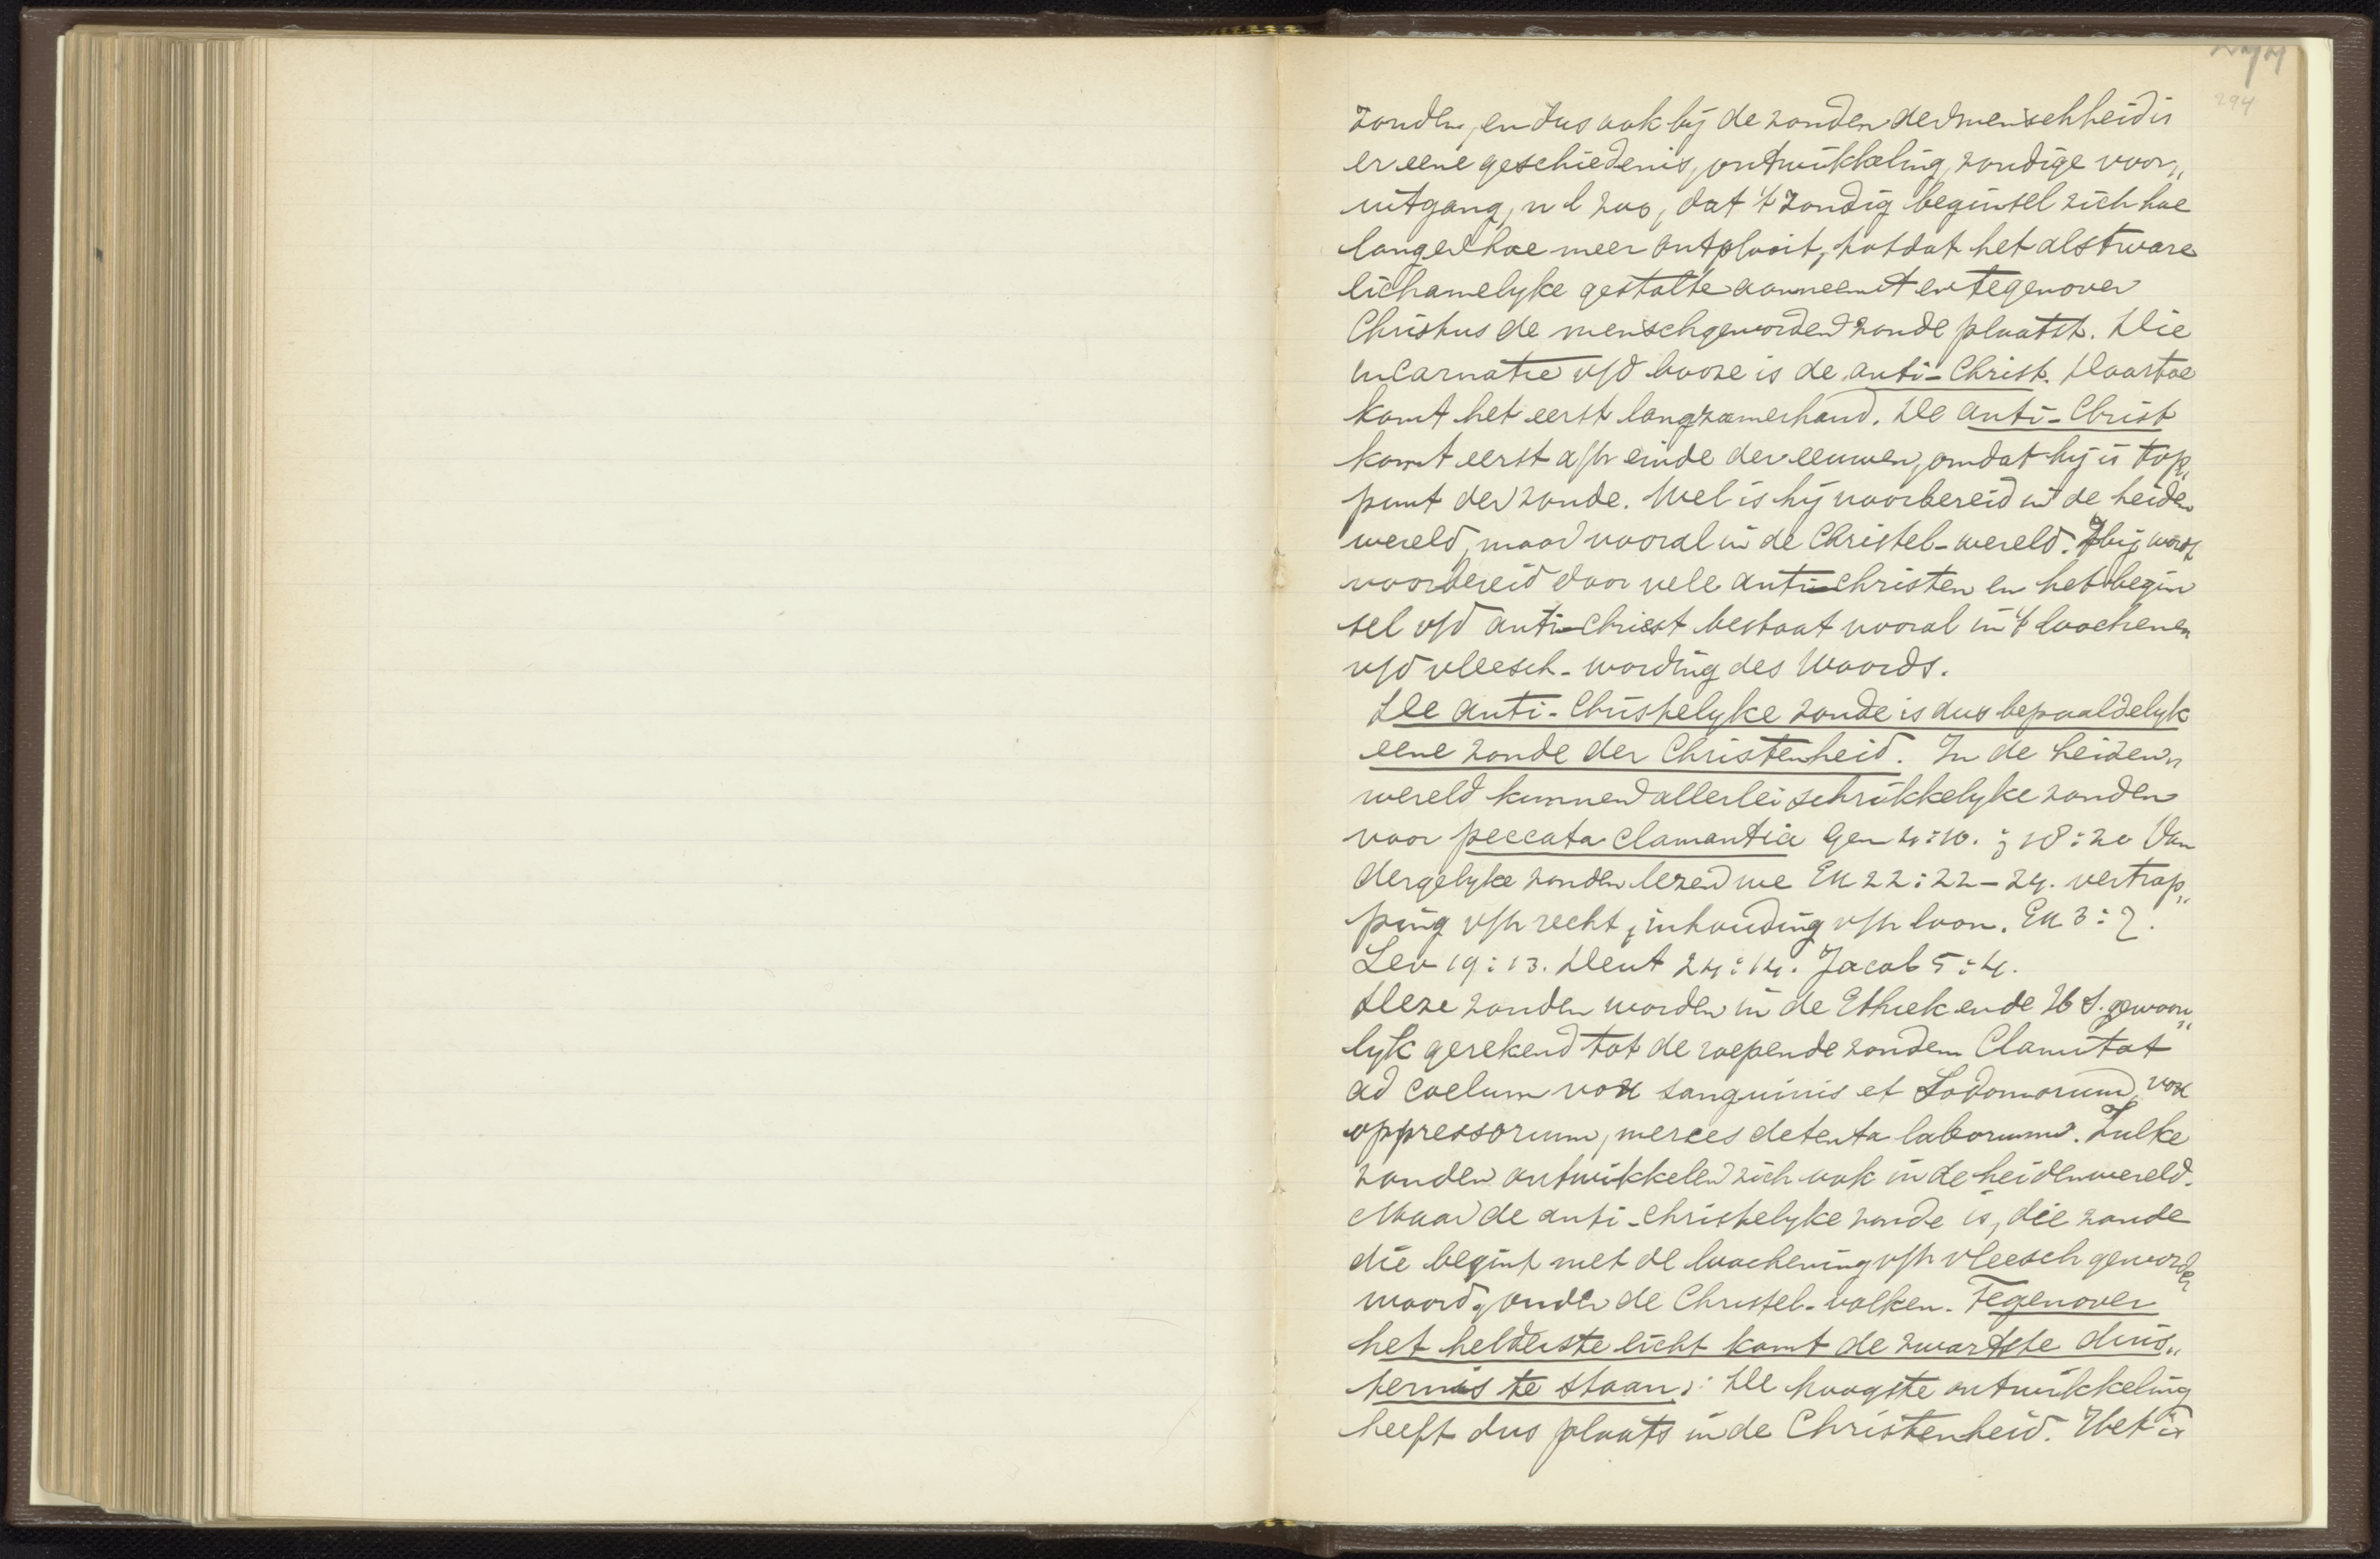 294
zonden, en dus ook bij de zonden der menschheid is
er eene geschiedenis, ontwikkeling, zondige voor„
uitgang, nl zoo, dat 't zondig beginsel zich hoe
langer hoe meer ontplooit, totdat het als t ware
lichamelyke gestalte aanneemt en tegenover
Christus de menschgeworden zonde plaatst. Die
incarnatie v/d booze is de anti-Christ. Daartoe
komt het eerst langzamerhand. De anti-Christ
komt eerst a/h einde der eeuwen, omdat hij is top„
punt der zonde. Wel is hij voorbereid in de heiden
wereld, maar vooral in de Christel-wereld. Hij wordt
voorbereid door vele anti-christen en het begin
sel v/d anti-christ bestaat vooral in 't loochenen
v/d vleesch-wording des Woords.
De anti-Christelyke zonde is dus bepaaldelyk
eene zonde der Christenheid. In de heiden„
wereld kunnen allerlei schrikkelyke zonden
voor peccata clamantia Gen 4:10. ; 18:20 Van
dergelyke zonden lezen we Ex 22:22-24. vertrap„
ping v/h recht, inhouding v/h loon. Ex 3:7.
Lev 19:13. Deut 24:14. Jacob 5:4.
Deze zonden worden in de Ethiek en de H S. gewoon„
lyk gerekend tot de roepende zonden Clamitat
ad coelum vox sanguinis et Sodomorum, vox
oppressorum, merces detenta laborum. Zulke
zonden ontwikkelen zich ook in de heidenwereld.
Maar de anti-christelyke zonde is, die zonde
die begint met de loochening v/h vleesch geworden
woord, onder de Christel-volken. Tegenover
het helderste licht komt de zwartste duis„
ternis te staan: De hoogste ontwikkeling
heeft dus plaats in de Christenheid. Het is